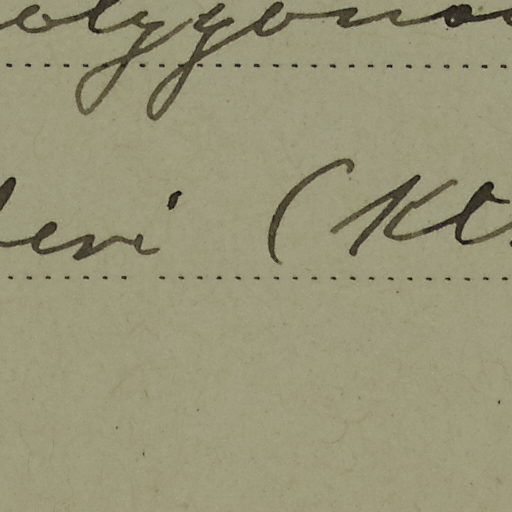 olygona
leri (Kl